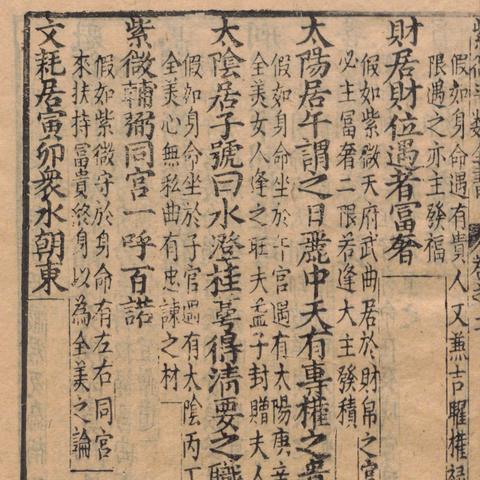 假如身命遇有貴人又兼吉曜權祿
限遇之亦主發福
財居財位遇者富奢
假如紫微天府武曲居於財帛之宮
必主冨奢二限若逢大主發積
太陽居午謂之日麗中天有專權之貴
假如身命坐於午宮遇有太陽庚辛
全美女人逢之旺夫益子封贈夫人
太陰居子號曰水澄桂萼得清要之職
假如身命坐於子宮遇有太陰丙丁
全美心無私曲有忠諫之材
紫微輔弼同宮一呼百諾
假如紫微守於身命有左右同宮
來扶持富貴終身以為全美之論
文耗居寅卯衆水朝東